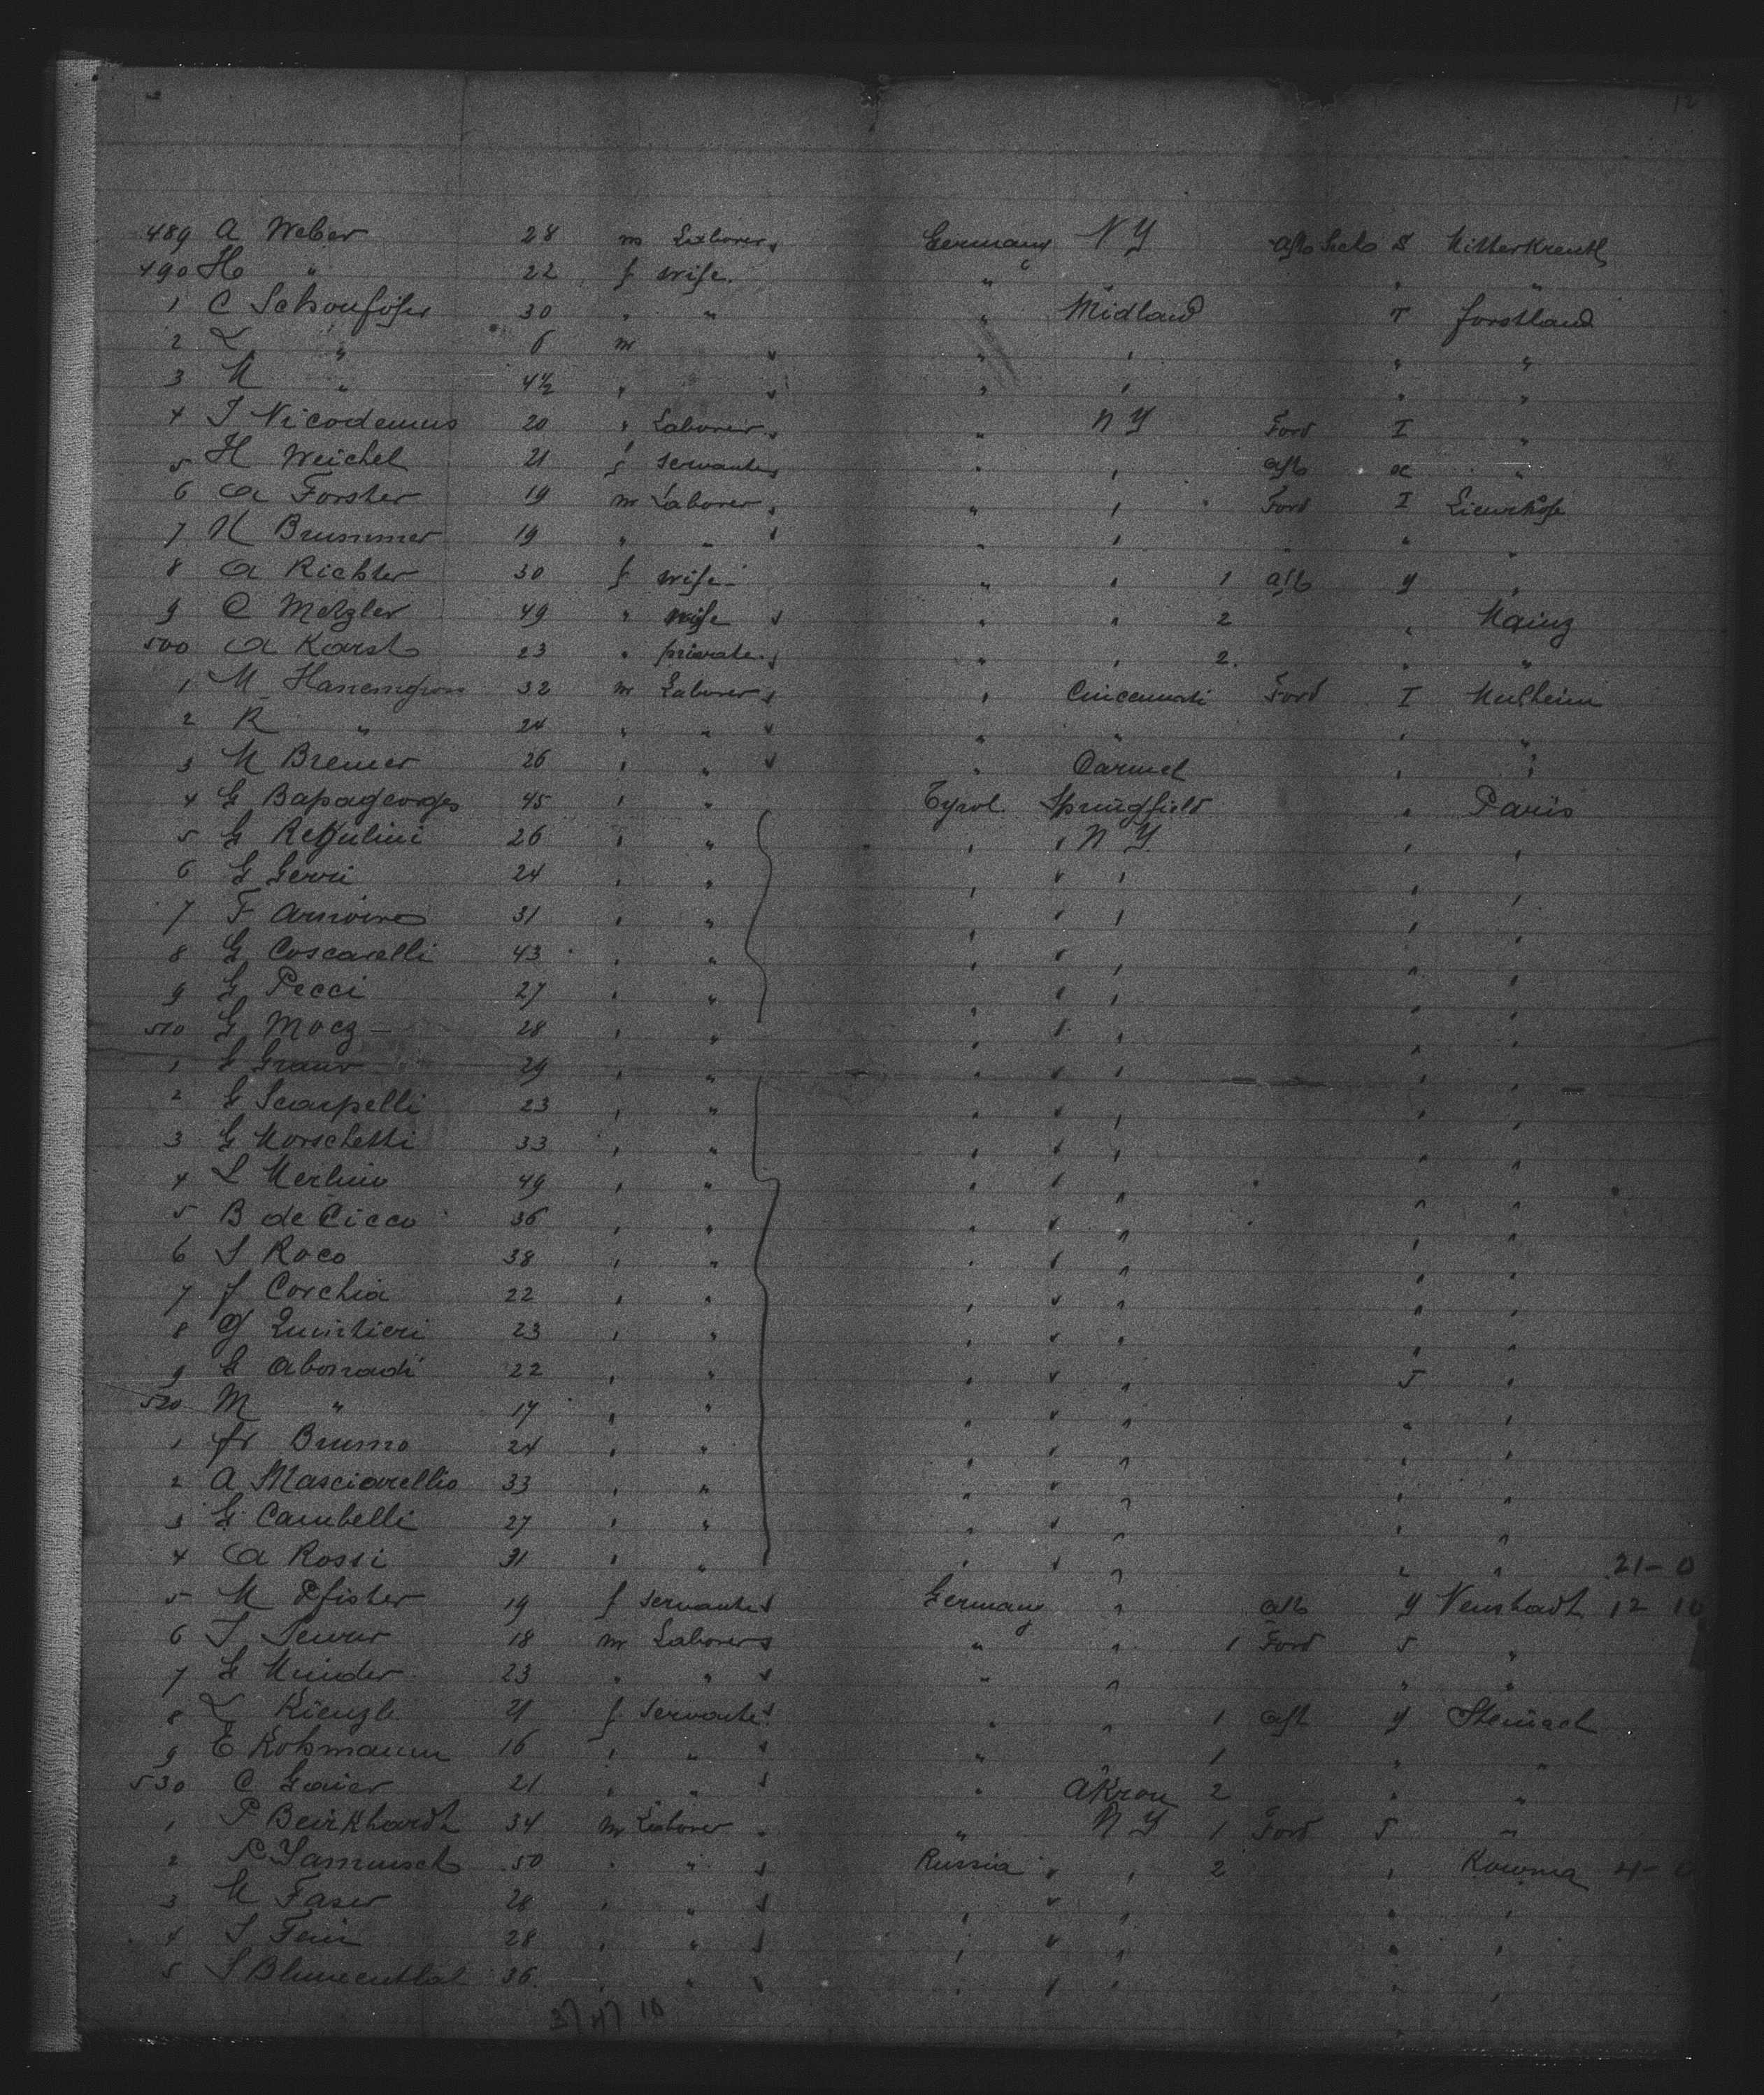 12
489 A Weber 28 m Laborer Germany N Y aft Seck S Mitterkreuth
490 H " 22 f wife " " " "
1 C Schonhöfer 30 " " " Midland T Forstland
2 L " 6 m " " " "
3 M " 4½ " " " " "
4 J Nicodemus 20 " Laborer " N Y Ford I "
5 H Weichel 21 f servante " " aft "
6 A Forster 19 m Laborer " " Ford I
7 N Brummer 19 " " " " " " "
8 A Richter 30 f wife " " 1 aft y "
9 C Metzler 49 " wife " " 2 " Mainz
500 A Karst 23 " private " " 2 " "
1 M 32 m Laborer " Cincennati Ford I Mulheim
2 R " 24 " " " " " "
3 M Bremer 26 " " " Carmel " "
4 G Bapageorges 45 " " Tyrol Springfield " Paris
5 G 26 " " " " N Y " "
6 G Gerri 24 " " " " " " "
7 F 31 " " " " " " "
8 G Coscarelli 43 " " " " " " "
9 G Pecci 27 " " " " " " "
510 G Mocz 28 " " " " " " "
1 G 29 " " " " " " "
2 G Scarpelli 23 " " " " " " "
3 G Morschetti 33 " " " " " " "
4 L Merlino 49 " " " " " " "
5 B de Cicco 36 " " " " " " "
6 S Roco 38 " " " " " " "
7 f Corchia 22 " " " " " " "
8 G Quintieri 23 " " " " " " "
9 G Abonadi 22 " " " " " 5 "
520 M " 17 " " " " " " "
1 fr Brunno 24 " " " " " " "
2 A Masciarellio 33 " " " " " " "
3 G Cambelli 27 " " " " " " "
4 A Rossi 31 " " " " " " " 21-0
5 M Pfister 19 f servante Germany " aft y Neustadt 12 10
6 J 18 m Laborer " " 1 Ford 5 "
7 G Munder 23 " " " " " "
8 L Kienzle 21 f servante " " 1 aft y Steinach
9 E Kohmann 16 " " " " 1 " "
530 C Gaier 21 " " " Akron 2 " "
1 P Beirkhardt 34 m Laborer " N Y 1 Ford 5 "
2 50 " " Russia " " 2 " Kowna 4-0
3 M Faser 28 " " " " " " "
4 S Fein 28 " " " " " " "
5 S Blumenthal 36 " " " " " " "
37 47 10